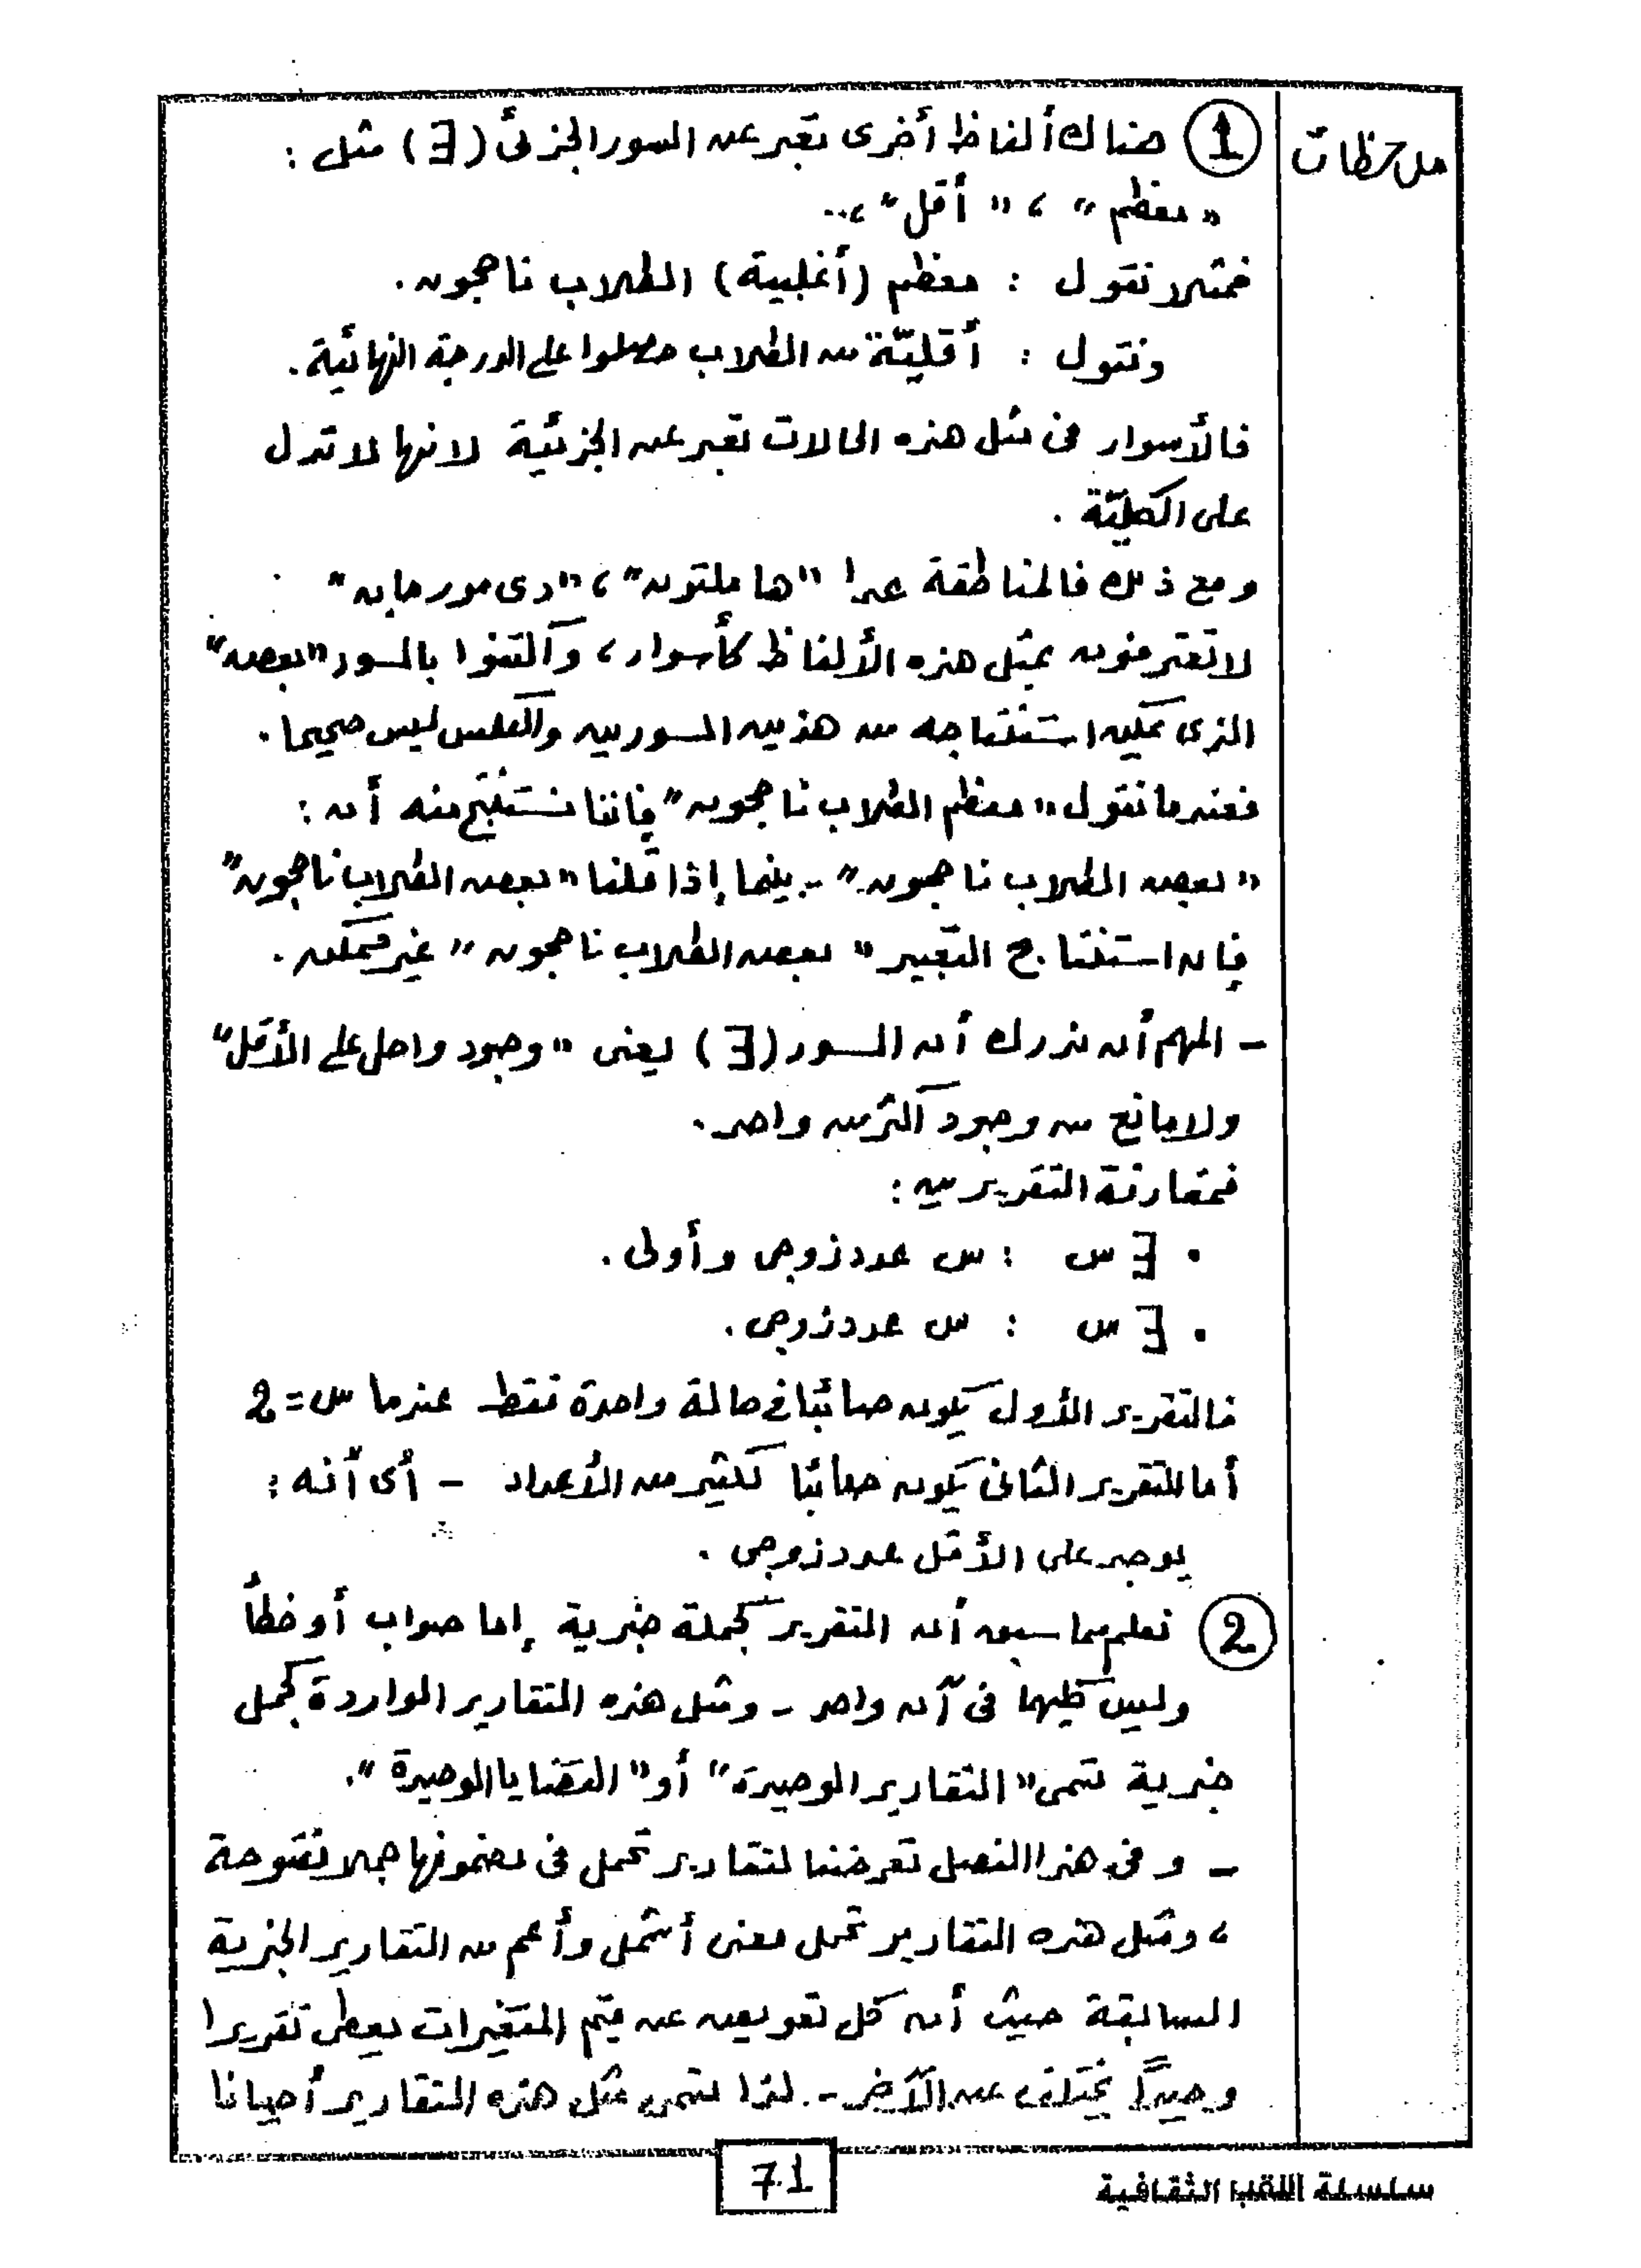 ملاحظات
① هناك ألفاظ أخرى تعبر عن السور الجزئى (∃) مثل :
« معظم » ، « أقل » ، ..
فمثلا نقول : معظم (أغلبية) الطلاب ناجحون .
ونقول : أقليّة من الطلاب حصلوا على الدرجة النهائية .
فالأسوار فى مثل هذه الحالات تعبر عن الجزئية لانها لا تدل
على الكليّة .
ومع ذلك فالمناطقة عدا "هاملتون" ، "دى مورجان"
لا تعترفون بمثل هذه الألفاظ كأسوار ، وآكتفوا بالسور "بعض"
الذى يمكن استنتاجه من هذين السورين والعكس ليس صحيحا .
فعندما نقول « معظم الطلاب ناجحون » فإننا نستنتج منه أن :
« بعض الطلاب ناجحون » - بينما إذا قلنا « بعض الطلاب ناجحون »
فإن استنتاج التعبير « بعض الطلاب ناجحون » غير ممكن .
- المهم أن ندرك أن السور (∃) يعنى « وجود واحل على الأقل »
ولا مانع من وجود آكثر من واحد .
فمقارنة التقريرين :
• ∃ س : س عدد زوجى وأولى .
• ∃ س : س عدد زوجى .
فالتقرير الأول يكون صائبا فى حالة واحدة فقط عندما س = 2
أما التقرير الثانى يكون صائبا لكثير من الأعداد - أى أنه :
يوجد على الأقل عدد زوجى .
② نعلم مما سبق أن التقرير كجملة خبرية إما صواب أو خطأ
وليس كليهما فى آن واحد - ومثل هذه التقارير الواردة كجمل
خبرية تسمى « التقارير الوحيدة » أو « القضايا الوحيدة » .
- وفى هذا الفصل تعرضنا لتقارير تحمل فى مضمونها جملا مفتوحة
، ومثل هذه التقارير تحمل معنى أشمل وأعم من التقارير الخبرية
السابقة حيث أن كل تعويض عن قيم المتغيرات يعطى تقريرا
وحيداً يختلف عن الآخر - . لذا تسمى مثل هذه التقارير أحيانا
71
سلسلة اللقب الثقافية